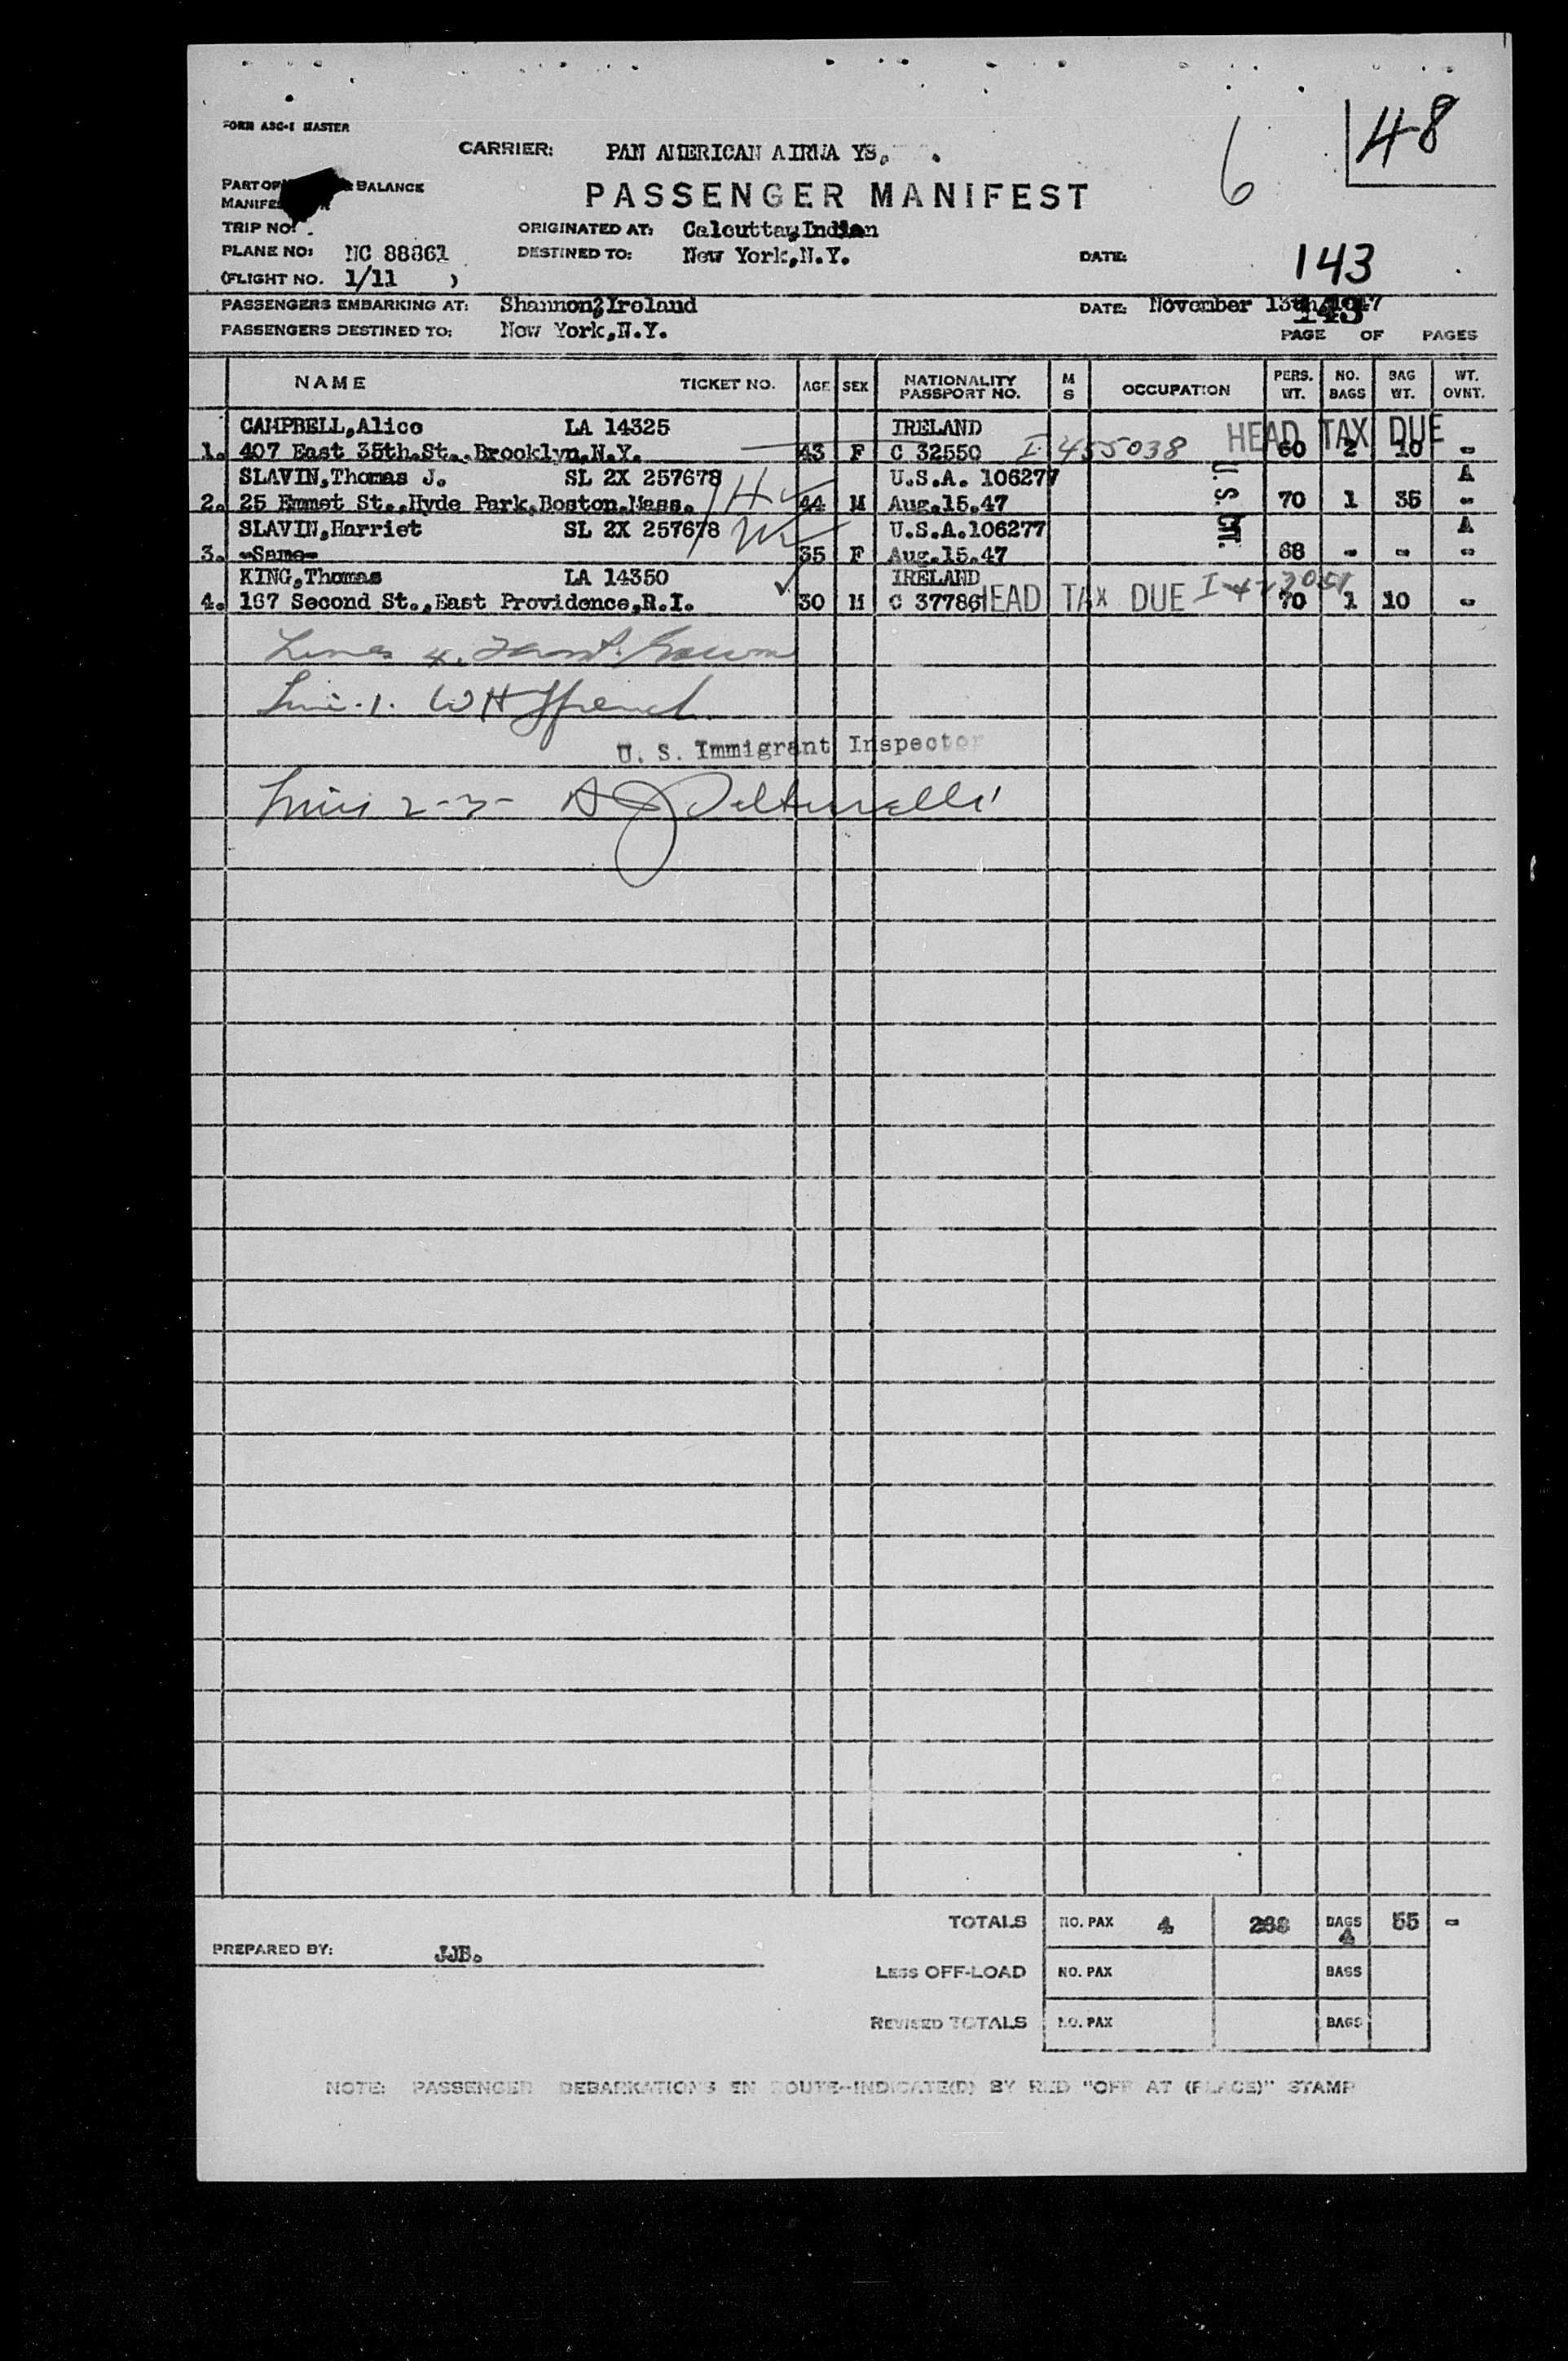 FORM ASC-1 MASTER
48
6
CARRIER: PAN AMERICAN AIRWA YS.
PART OF BALANCE
MANIFEST
PASSENGER MANIFEST
TRIP NO:
ORIGINATED AT: Calcutta, Indian
PLANE NO: NC 88861
DESTINED TO: New York,N.Y.
DATE:
143
(FLIGHT NO. 1/11 )
PASSENGERS EMBARKING AT: Shannon, Ireland
DATE: November 13th, 1947
143
PASSENGERS DESTINED TO: New York,N.Y.
PAGE OF PAGES
NAME TICKET NO. AGE SEX NATIONALITY PASSPORT NO. M S OCCUPATION PERS. WT. NO. BAGS BAG WT. WT. OVNT.
CAMPBELL,Alice LA 14325 IRELAND HEAD TAX DUE
1. 407 East 35th.St..Brooklyn,N.Y. 43 F C 32550 I-455038 60 2 10 -
SLAVIN,Thomas J. SL 2X 257678 U.S.A. 106277 A
2. 25 Emmet St.,Hyde Park,Boston,Mass. 44 M Aug.15.47 U.S. CIT. 70 1 35 -
SLAVIN,Harriet SL 2X 257678 U.S.A.106277 A
3. -Same- 35 F Aug.15.47 68 - - -
KING,Thomas LA 14350 IRELAND
4. 167 Second St.,East Providence,R.I. 30 M C 37786 HEAD TAX DUE 70 1 10 -
Lines 4.
Line.1. W H
U. S. Immigrant Inspector
Lines 2-3-
TOTALS NO. PAX 4 268 BAGS 4 55 -
PREPARED BY: JJB.
LESS OFF-LOAD NO. PAX BAGS
REVISED TOTALS NO. PAX BAGS
NOTE: PASSENGER DEBARKATIONS EN ROUTE--INDICATE(D) BY RED "OFF AT (PLACE)" STAMP